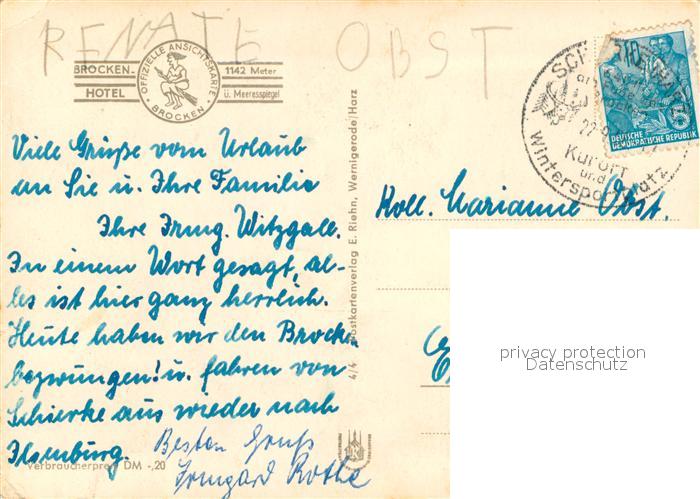 RENATE OBST
BROCKEN-
HOTEL
OFFIZIELLE ANSICHTSKARTE
BROCKEN
1142 Meter
ü. Meeresspiegel
Viele Grüße vom Urlaub
an Sie u. Ihre Familie
Ihre Irmg. Witzgall.
In einem Wort gesagt, al-
les ist hier ganz herrlich.
Heute haben wir den Brocken
bezwungen! u. fahren von
Schierke aus wieder nach
Ilsenburg.
Besten Gruß
Irmgard Rothe
Verbraucherpreis DM -,20
4/4 Postkartenverlag E. Riehn, Wernigerode/Harz
Kurort
und
Wintersportplatz
DEUTSCHE
DEMOKRATISCHE REPUBLIK
Koll. Marianne Obst.
privacy protection
Datenschutz